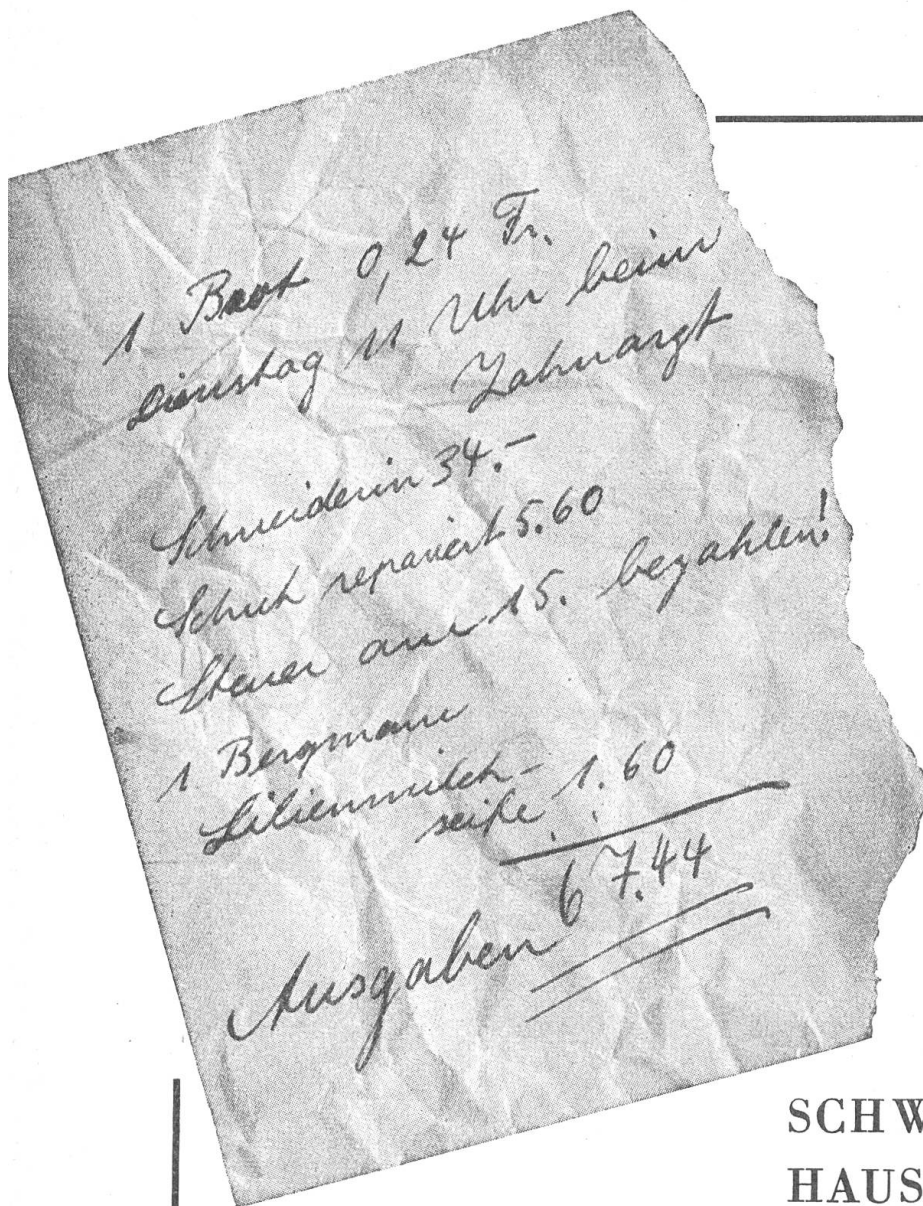 1 Brot 0,24 Fr.
Dienstag 11 Uhr beim
Zahnarzt
Schneiderin 34.–
Schuh repariert 5.60
Steuer am 15. bezahlen!
1 Bergmann
Lilienmilch-
seife 1.60
Ausgaben 67.44
SCHW
HAUS